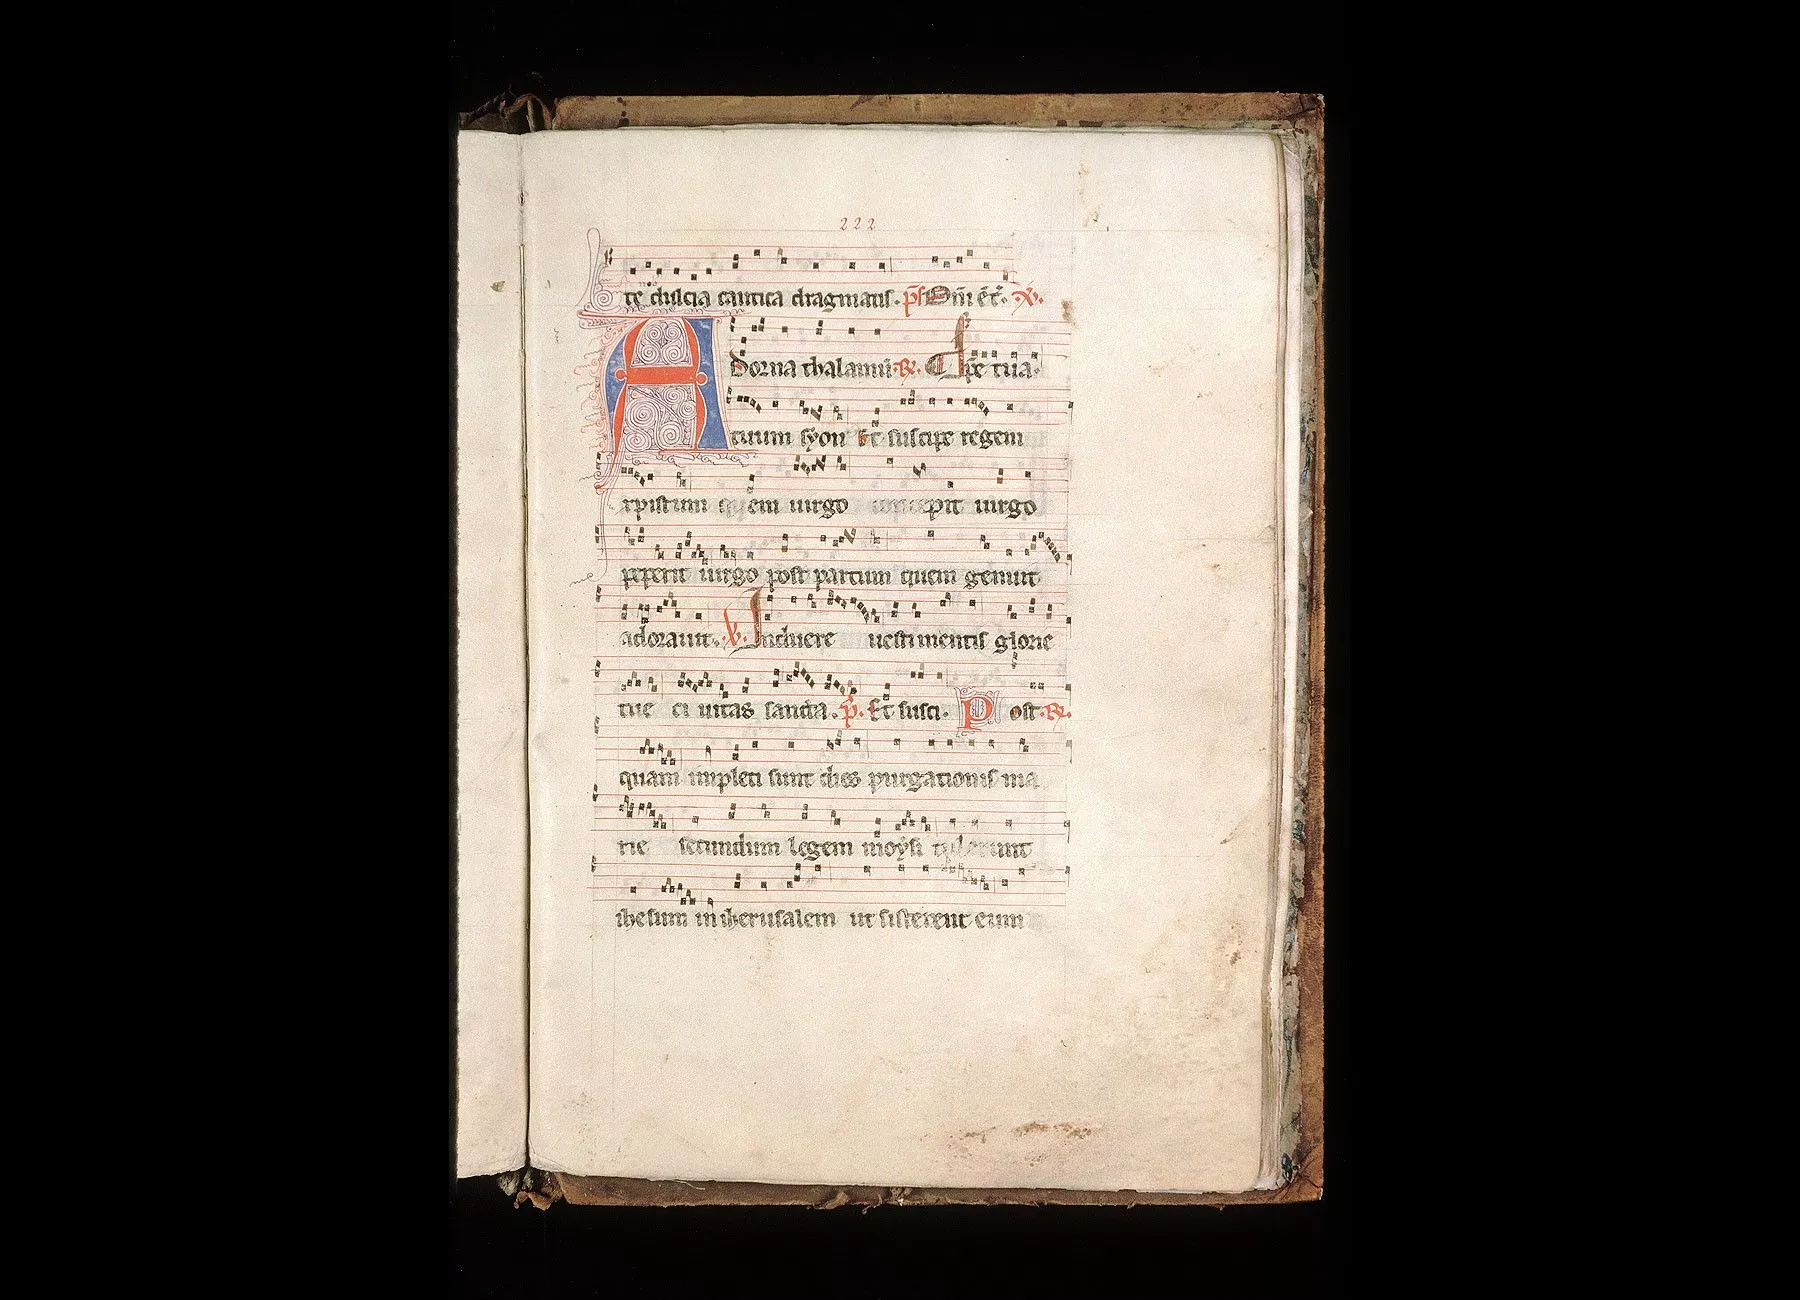 222
te dulcia cantica dragmatis. ps Om̄ et̄c̄. xp̄.
Adorna thalamū. R. Aspe tua.
tuum syon Et suscipe regem
xpistum quem uirgo concepit uirgo
peperit uirgo post partum quem genuit
adorauit. V. Induere uestimentis glorie
tue ciuitas sancta. P. Et susci. Post. R.
quam impleti sunt dies purgationis ma
rie secundum legem moysi tulerunt
ihesum in iherusalem ut sisterent eum